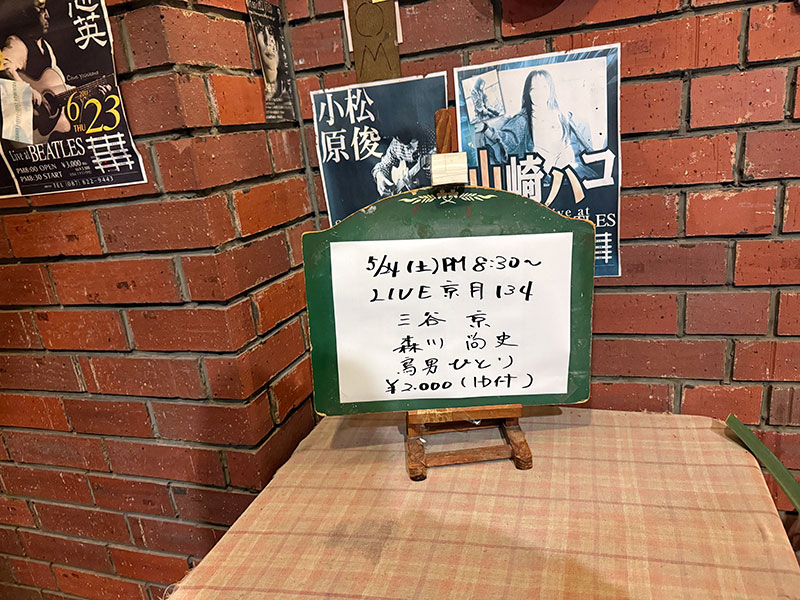 志英
6 THU 23
Live at BEATLES
PM8:00 OPEN ¥3,000
PM8:30 START
TEL (087) 822-9443
OM
小松
原俊
山崎ハコ
5/24(土)PM 8:30〜
LIVE 京月134
三谷 京
森川 尚史
鳥男ひとり
¥2.000(1D付)